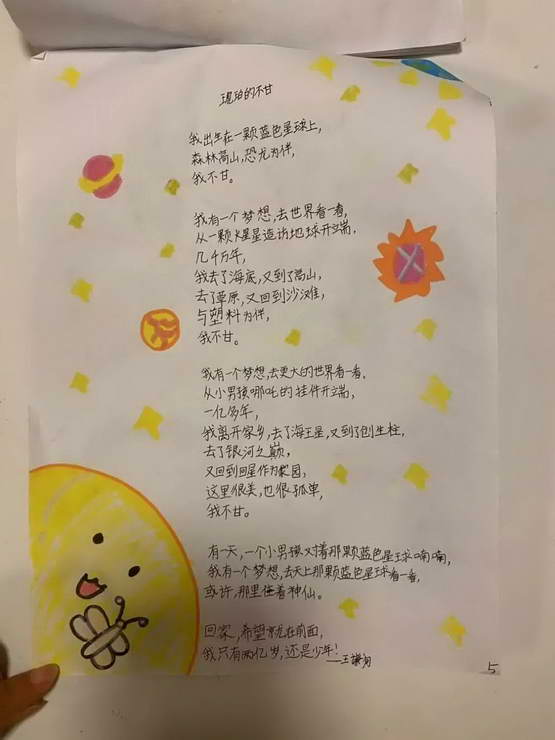 琥珀的不甘
我出生在一颗蓝色星球上,
森林高山,恐龙为伴,
我不甘。
我有一个梦想,去世界看一看,
从一颗火星星造访地球开端,
几千万年,
我去了海底,又到了高山,
去了草原,又回到沙滩,
与塑料为伴,
我不甘。
我有一个梦想,去更大的世界看一看,
从小男孩哪吒的挂件开端,
一亿多年,
我离开家乡,去了海王星,又到了创生柱,
去了银河之巅,
又回到回星作为家园,
这里很美,也很孤单,
我不甘。
有一天,一个小男孩对着那颗蓝色星球喃喃,
我有一个梦想,去天上那颗蓝色星球看一看,
或许,那里住着神仙。
回家,希望就在前面,
我只有两亿岁,还是少年!——王
5